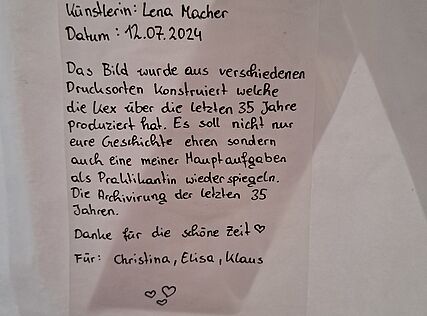 Künstlerin: Lena Macher
Datum: 12.07.2024
Das Bild wurde aus verschiedenen
Drucksorten konstruiert welche
die Kex über die letzten 35 Jahre
produziert hat. Es soll nicht nur
eure Geschichte ehren sondern
auch eine meiner Hauptaufgaben
als Praktikantin wiederspiegeln.
Die Archivirung der letzten 35
Jahren.
Danke für die schöne Zeit ♡
Für: Christina, Elisa, Klaus